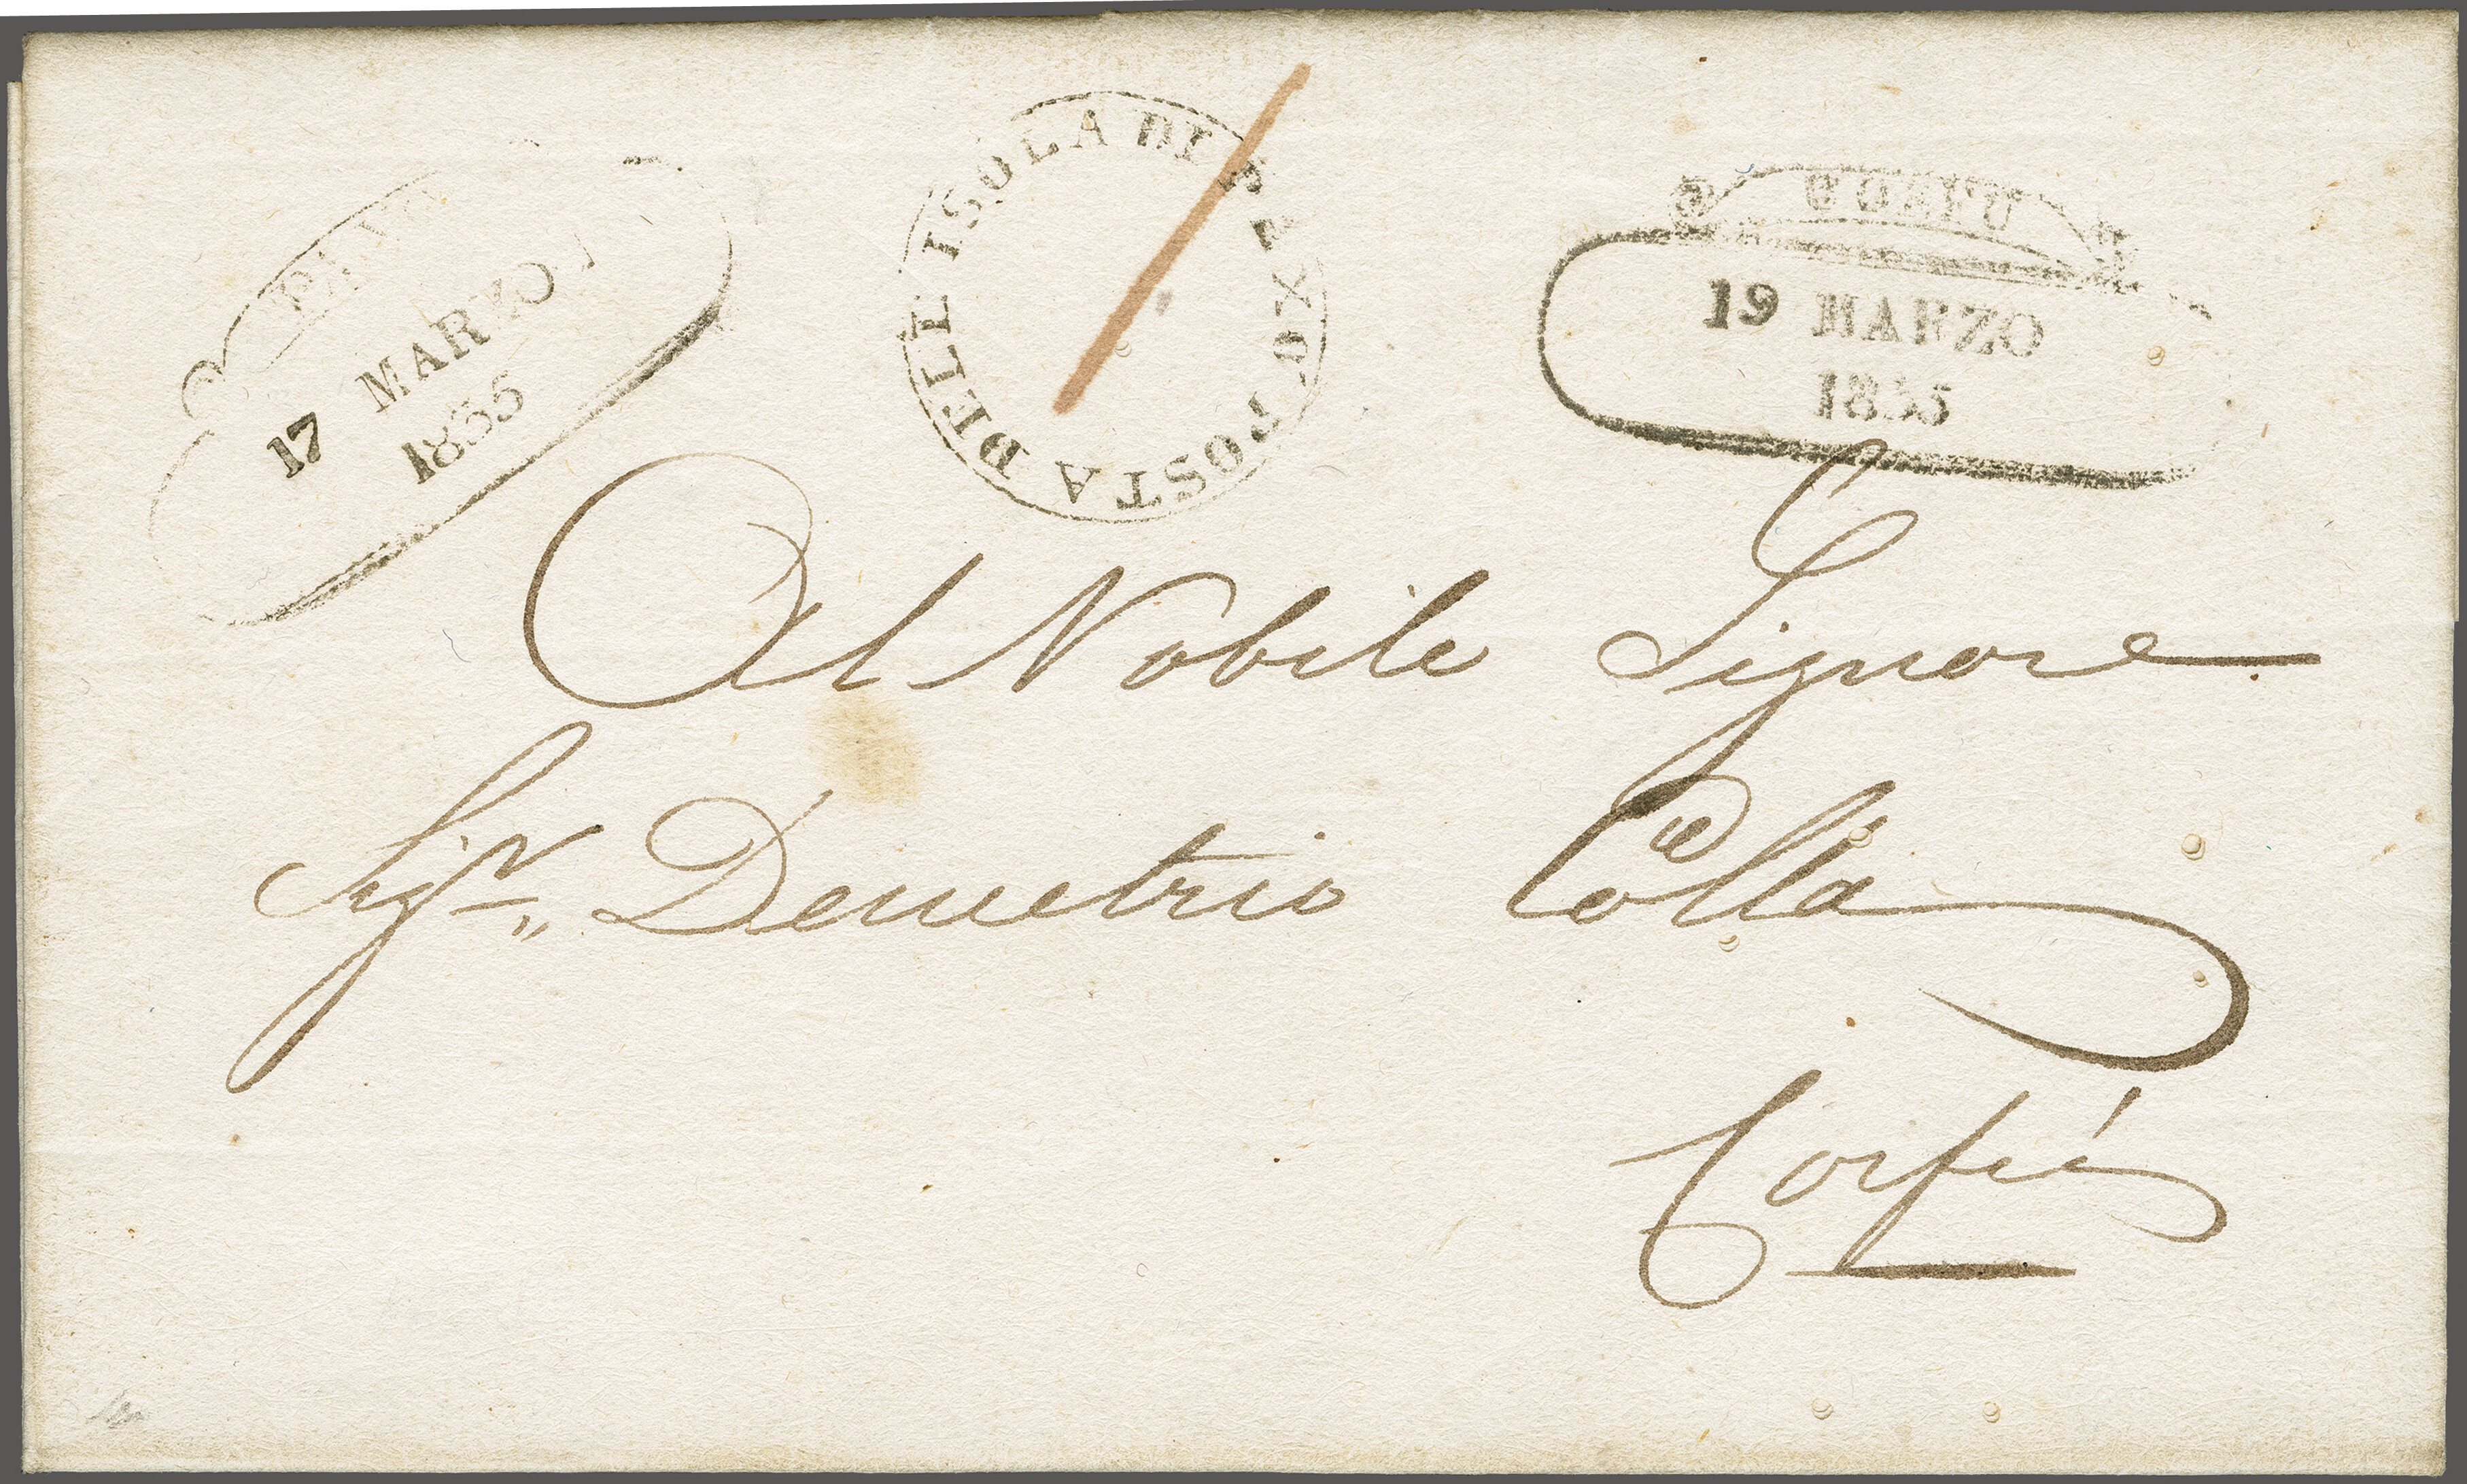 17 MARZO
1855
POSTA DELL' ISOLA DI PAXO.
CORFU
19 MARZO
1855
Al Nobile Signore
Sigr. Demetrio Colla
Corfù